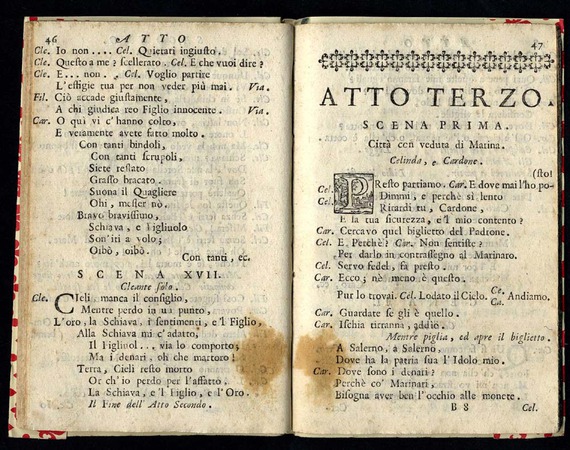 46 ATTO
Cle. Io non .... Cel. Quietati ingiusto.
Cle. Questo a me? scellerato. Cel. E che vuoi dire?
Cle. E... non.. Cel. Voglio partire
L'effigie tua per non veder più mai. Via.
Fil. Ciò accade giustamente,
A chi giudica reo Figlio innocente. Via.
Car. O qui v'hanno colto,
E veramente avete fatto molto.
Con tanti bindoli,
Con tanti scrupoli,
Siete restato
Grasso bracato.
Suona il Quagliere
Ohi, messer no.
Bravo bravissimo,
Schiava, e Figliuolo
Son'iti a volo;
Oibò, oibò.
Con tanti, ec.
SCENA XVII.
Cleante solo.
Cle. Cieli, manca il consiglio,
Mentre perdo in un punto,
L'oro, la Schiava, i sentimenti, e 'l Figlio,
Alla Schiava mi c'adatto,
Il Figliuol... via lo comporto;
Ma i denari, oh che martoro!
Terra, Cieli resto morto
Or ch'io perdo per l'affatto,
La Schiava, e 'l Figlio, e l'Oro.
Il Fine dell'Atto Secondo.
47
ATTO TERZO.
SCENA PRIMA.
Città con veduta di Marina.
Celinda, e Cardone.
(sto!
Cel. PResto partiamo. Car. E dove mai l'ho po-
Cel. Dimmi, e perchè sì lento
Ritardi tu, Cardone,
E la tua sicurezza, e 'l mio contento?
Car. Cercavo quel biglietto del Padrone.
Cel. E. Perchè? Car. Non sentiste?
Per darlo in contrassegno al Marinaro.
Cel. Servo fedel, fa presto.
Car. Ecco; nè meno è questo.
Pur lo trovai. Cel. Lodato il Cielo. Ce. Ca. Andiamo.
Car. Guardate se gli è quello.
Car. Ischia tiranna, addio.
Mentre piglia, ed apre il biglietto.
A Salerno, a Salerno,
Dove ha la patria sua l'Idolo mio.
Car. Dove sono i denari?
Perchè co' Marinari,
Bisogna aver ben l'occhio alle monete.
B 8 Cel.